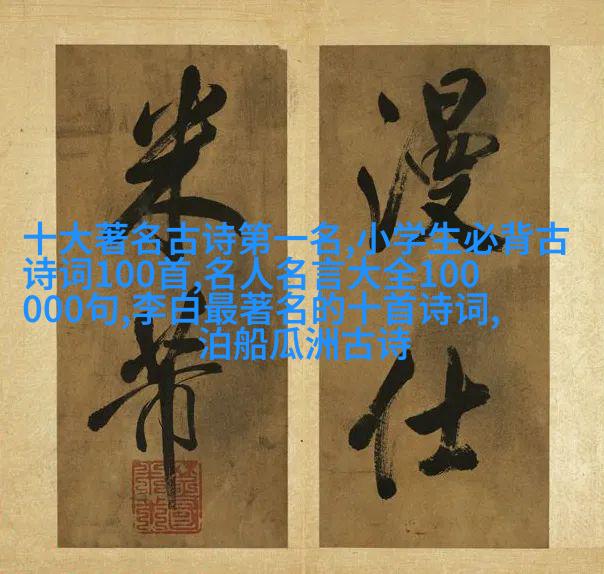 漫仕
米芾
十大著名古诗第一名,小学生必背古
诗词100首,名人名言大全100
000句,李白最著名的十首诗词,
泊船瓜洲古诗